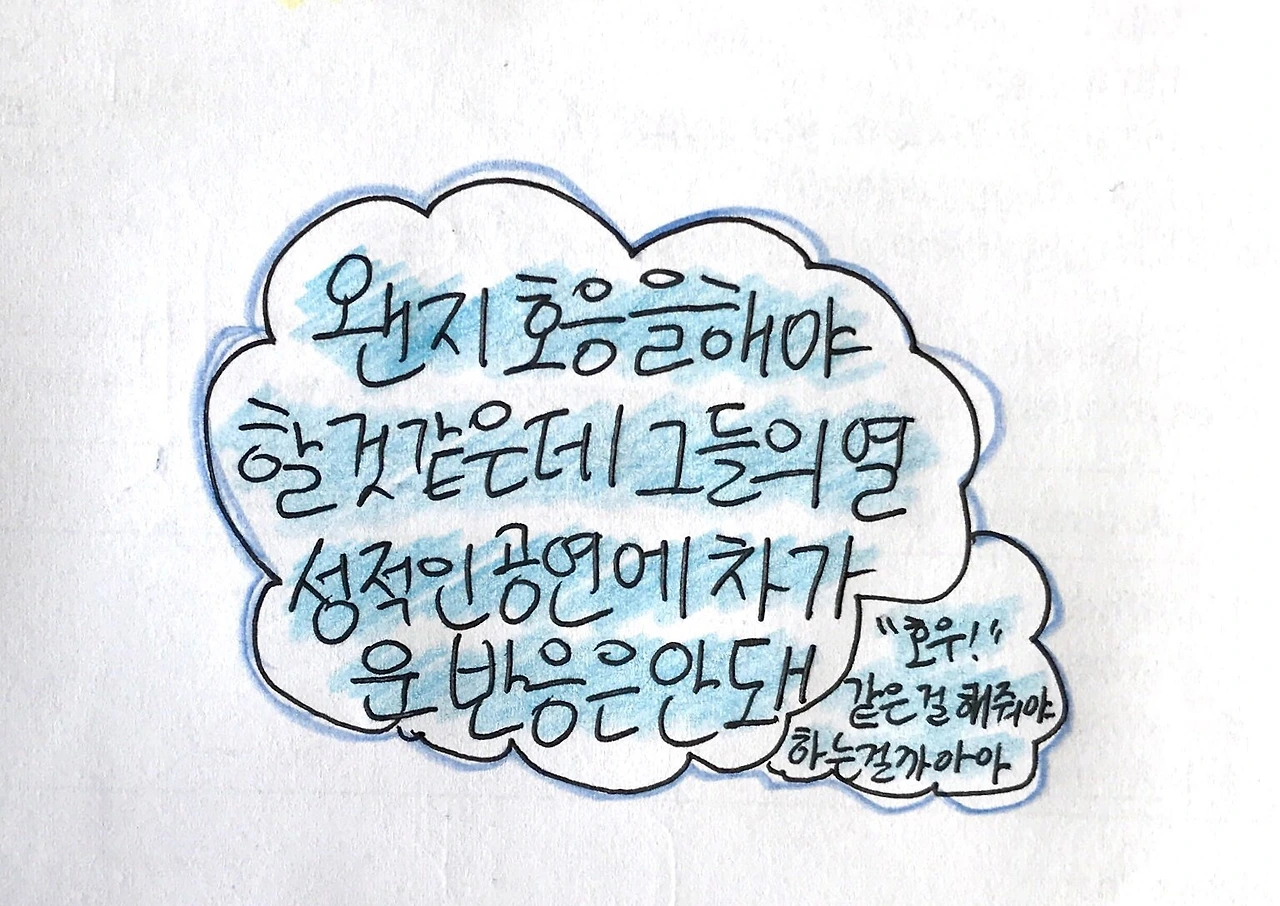 왠지 호응을해야
할것같은데 그들의 열
성적인공연에 차가
운 반응은안돼
"호우!"
같은걸 해줘야
하는걸까아야